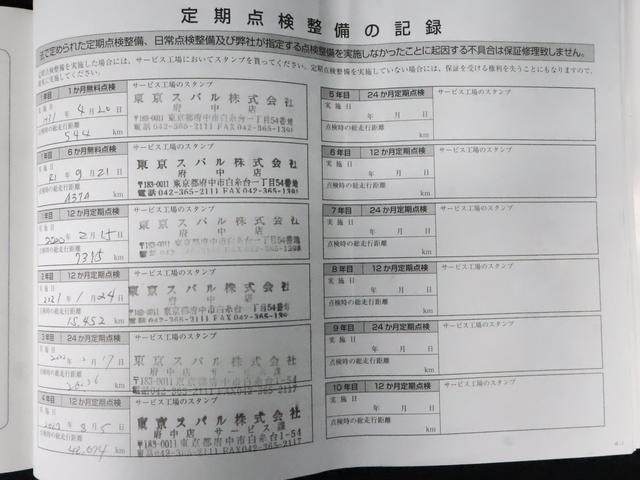 定期点検整備の記録
法で定められた定期点検整備、日常点検整備及び弊社が指定する点検整備を実施しなかったことに起因する不具合は保証修理致しません。
定期点検整備を実施した場合には、サービス工場においてスタンプを貰ってください。定期点検整備を実施していない場合には、保証を受ける権利を失うことにもなりますので、
実施してください。
1年目 1か月無料点検 サービス工場のスタンプ
実施日
H31年 4月 20日
点検時の総走行距離
544 km
東京スバル株式会社
府中店
〒183-0011 東京都府中市白糸台一丁目54番地
電話 042-365-2111 FAX 042-365-1301
1年目 6か月無料点検 サービス工場のスタンプ
実施日
R1年 9月 21日
点検時の総走行距離
km
東京スバル株式会社
府中店
〒183-0011 東京都府中市白糸台一丁目54番地
電話 042-365-2111 FAX 042-365-1301
1年目 12か月定期点検 サービス工場のスタンプ
実施日
2020年 2月 15日
点検時の総走行距離
7315 km
東京スバル株式会社
府中店
〒183-0011 東京都府中市白糸台一丁目54番地
電話 042-365-2111 FAX 042-365-1301
2年目 12か月定期点検 サービス工場のスタンプ
実施日
2021年 1月 24日
点検時の総走行距離
15,452 km
東京スバル株式会社
府中店
〒183-0011 東京都府中市白糸台一丁目54番地
電話 042-365-2111 FAX 042-365-1301
3年目 24か月定期点検 サービス工場のスタンプ
実施日
年 月 17日
点検時の総走行距離
km
東京スバル株式会社
府中店 サービス課
〒183-0011 東京都府中市白糸台1-54
電話 042-365-2111
4年目 12か月定期点検 サービス工場のスタンプ
実施日
年 3月 5日
点検時の総走行距離
km
東京スバル株式会社
府中店 サービス課
〒183-0011 東京都府中市白糸台1-54
電話 042-365-2111
5年目 24か月定期点検 サービス工場のスタンプ
実施日
年 月 日
点検時の総走行距離
km
6年目 12か月定期点検 サービス工場のスタンプ
実施日
年 月 日
点検時の総走行距離
km
7年目 24か月定期点検 サービス工場のスタンプ
実施日
年 月 日
点検時の総走行距離
km
8年目 12か月定期点検 サービス工場のスタンプ
実施日
年 月 日
点検時の総走行距離
km
9年目 24か月定期点検 サービス工場のスタンプ
実施日
年 月 日
点検時の総走行距離
km
10年目 12か月定期点検 サービス工場のスタンプ
実施日
年 月 日
点検時の総走行距離
km